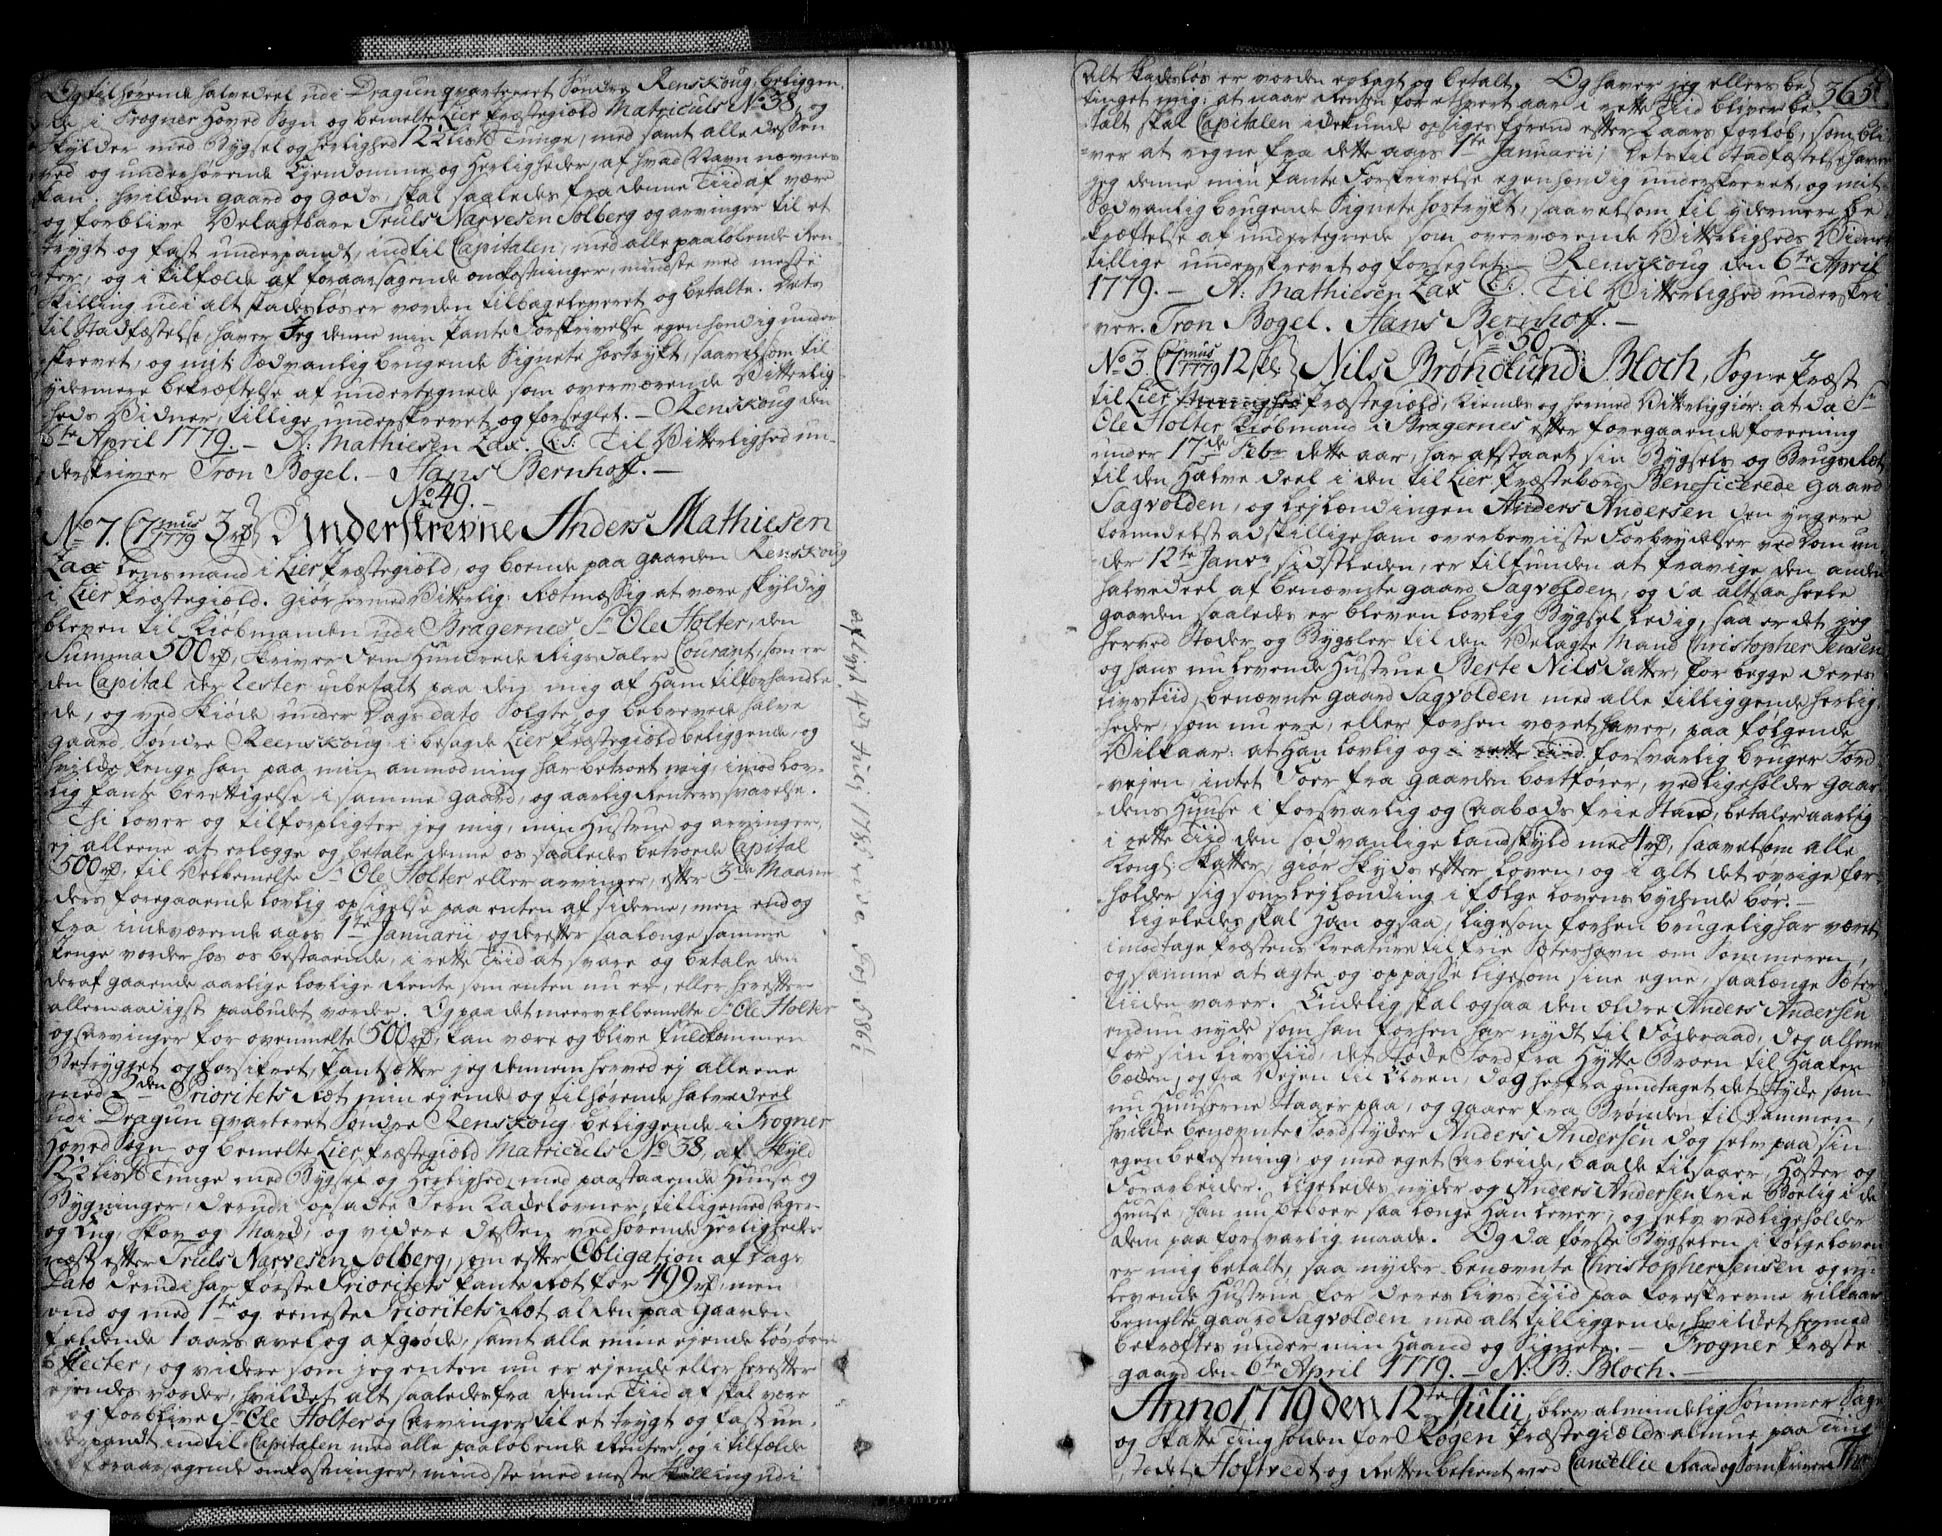 Og tilhørende halvedeel udi Dragunqvarteret Søndre Renskoug, beliggen-
de i Frogner Hoved Sogn og bemelte Lier Præstegiæld Matriculs No 38, og
skylder med Bygsel og herlighed 12½ Lis℔ Tunge, med samt alle dessen
ved og underhørende Ejendomme og Herligheder, af hvad Navn nævnes
kan, hvilken gaard og gods, skal saaledes fra denne Tiid af være
og forblive Velagtbare Truls Narvesen Solberg og arvinger til et
trygt og fast underpandt, indtil Capitalen, med alle paaløbende Ren-
ter, og i tilfælde af foraarsagende omkostninger, mindste med meste
Skilling udi alt skadesløs er vorden tilbageleveret og betalte. Dets
til Stadfæstelse, haver Jeg denne min Pante Forskrivelse egenhændig under-
skrevet, og mit Sædvanlig brugende Signete hostrykt, saavelsom til
ydermere bekræftelse af undertegnede som overværende Vitterlig-
heds Vidner, tillige underskrevet og forseglet. – Renskoug den
6te April 1779. – A: Mathiesen Lax. (L:S:) Til Vitterlighed un-
derskriver Tron Bogel. – Hans Bernhoff. –
No 49. –
No 7. (7mus 1779 3 rd) Underskrevne Anders Mathiesen
Lax Lensmand i Lier Præstegiæld, og boende paa gaarden Renskoug
i Lier Præstegiæld. Giør hermed Vitterlig: Retmæssig at være skyldig
bleven til Kiøbmanden udi Bragernes Sr Ole Holter, den
Summa 500 rd, skriver Fem Hundrede Rigsdaler Courant, som er
den Capital der Rester ubetalt paa den mig af Ham tilforhandle-
de, og ved Skiøde under Dags dato Solgte og bebrevede halve
gaard, Søndre Reenskoug i besagde Lier Præstegiæld beliggende, og
hvilke Penge han paa min anmodning har betroet mig, imod lov-
lig Pante berettigelse i samme gaard, og aarlig Renters svarelse.
Thi lover og tilforpligter jeg mig, min Hustrue og arvinger,
ej allene at erlægge og betale denne os saaledes betroede Capital
500 rd, til Velbemelte Sr Ole Holter eller arvinger, efter 3de Maane-
ders foregaaende lovlig opsigelse paa enten af siderne, men end og
fra indeværende aars 1te Januarii og derefter saalænge samme
Penge vorder hos os bestaaende, i rette Tiid at svare og betale den
deraf gaaende aarlige lovlige Rente som enten nu er, eller herefter
allernaadigst paabudet vorder. Og paa det meervelbemelte Sr Ole Holter
og Arvinger for ovenmelte 500 rd, kan være og blive fuldkommen
Betrygget og forsikret, Pantsætter jeg dennem herved ej alleene
med 2den Prioritets Ræt min ejende og tilhørende halvedeel
udi Dragun qvarteret Søndre Renskoug beliggende i Frogner
Hoved Sogn og bemelte Lier Præstegiæld Matriculs No 38, af Skyld
12½ Lis℔ Tunge med Bygsel og Herlighed, med paastaaende Huuse og
Bygninger, derudi opsadte Jern Kakelovner, tillige med Ager
og Eng, Skov og Mark, og videre dessen ved hørende Herligheder
næst efter Truls Narvesen Solberg, som efter Obligation af Dags
Dato derudi har første Prioritets Pante Ræt for 499 rd, men
end og med 1te og eeneste Prioritets Ræt al den paa Gaarden
faldende 1 aars avel og afgrøde, samt alle mine ejende løsøren
Effecter, og videre som jeg enten nu er ejende eller herefter
ejendes vorder, hvildet alt saaledes fra denne Tiid af skal være
og forblive Sr Ole Holter og Arvinger til et trygt og fast un-
derpandt indtil Capitalen med alle paaløbende Renter, og i tilfælde
foraarsagende omkostninger, mindste med meste Skilling udi
aflyst 4de Juli 178 vide Fol 586
365
alt skadesløs er vorden erlagt og betalt. Og haver jeg ellers be-
tinget mig: at naar Renten for ethvert aar i rette Tiid bliver be-
talt skal Capitalen icke kunde opsiges førend efter 2 aars forløb, som bli-
ver at regne fra dette aars 1te Januarii, Dets til Stadfæstelse haver
jeg denne min Pante Forskrivelse egenhændig underskrevet, og mit
Sædvanlig brugende Signete hostrykt, saavelsom til ydermere be-
kræftelse af undertegnede som overværende Vitterligheds Vidner
tillige underskrevet og forseglet. – Renskoug den 6te April
1779. – A: Mathiesen Lax (L:S:) Til Vitterlighed underskri-
ver. Tron Bogel. Hans Bernhoff. –
No 50.
No 3. (7mus 1779 12 sk) Nils Brøndlund Bloch, Sogne Præst
til Lier Præstegiæld, Kiendes og hermed Vitterliggiør: at da Sr
Ole Holter Kiøbmand i Bragernes efter foregaaende forening
under 17de Febr dette aar, har afstaaet sin Bygsels og Brugs Ræt
til den Halve deel i den til Lier Præstebord Beneficerede gaard
Sagvolden, og Lejlændingen Anders Andersen den yngere
formedelst adskillige ham overbeviiste Forbrydelser ved Dom un-
der 12te Janr sidstleden, er tilfunden at fravige den anden
halvedeel af benævnte gaard Sagvolden, og da altsaa heele
gaarden saaledes er bleven lovlig Bygsel ledig, saa er det jeg
herved Stæder og Bygsler til den Velagte Mand Christopher Jensen
og hans nu levende Hustrue Berte Nils datter, for begge deres
livstiid, benævnte gaard Sagvolden med alle tilliggende herlig-
heder, som nu ere, eller forhen været haver, paa følgende
Vilkaar: at han lovlig og i rette Tiid forsvarlig bruger Jord-
vejen, intet Foer fra gaarden bortfører, vedligeholder gaar-
dens Huuse i forsvarlig og Aabods frie Stand, betaler aarlig
i rette Tiid den sædvanlige Landskyld med 4 rd, saavelsom alle
Kongl: Skatter, giør Skyds efter Loven, og i alt det øvrige for-
holder sig som Lejlænding i følge Lovens bydende bør. –
Ligeledes skal han ogsaa, ligesom forhen brugelig har været
imodtage Præstens Creature til frie Sæterhavn om Sommeren,
og samme at agte og oppasse ligesom sine egne, saalænge Sæter
tiiden varer. Endelig skal ogsaa den ældre Anders Andersen
endnu nyde som han forhen har nydt til Føderaad, dog allene
for sin livs tiid, det støde Jord fra Hytte Broen til Haaken-
bæden, og fra Vejen til Elven, dog herfra undtaget det Stycke som
nu Huuserne staaer paa, og gaaer fra Brønden til Dammen,
hvilke benævnte Jordstycker Anders Andersen dog selv paa sin
egen bekostning, og med eget Arbeide, baade tilsaaer, Høster og
Forarbeider. Ligeledes nyder og Anders Andersen frie Boelig i de
Huuse, han nu beboer saa længe Han lever, og selv vedligeholder
dem paa forsvarlig maade. Og da første Bygselen i følge Loven
er mig betalt, saa nyder benævnte Christopher Jensen og nu
levende Hustrue for deres livs Tiid paa foreskrevne vilkaar
bemelte gaard Sagvolden med alt tilliggende, hvildet hermed
bekræftes under min Haand og Signete. – Frogner Præste
gaard den 6te April 1779. – N: B: Bloch. –
Anno 1779 den 12te Julii, blev almindelig Sommer Sage
og Skatte Ting holden for Røgen Præstegiælds almue paa Ting
stedet Hoftvedt og Retten betient ved Cancellie Raad og Sorenskriver